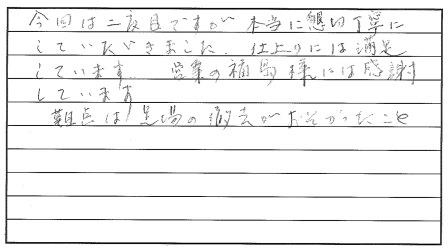 今回は二度目ですが 本当に懇切丁寧に
していただきました. 仕上りには満足
しています. 営業の福島様には感謝
しています
難点は足場の撤去がおそかったこと